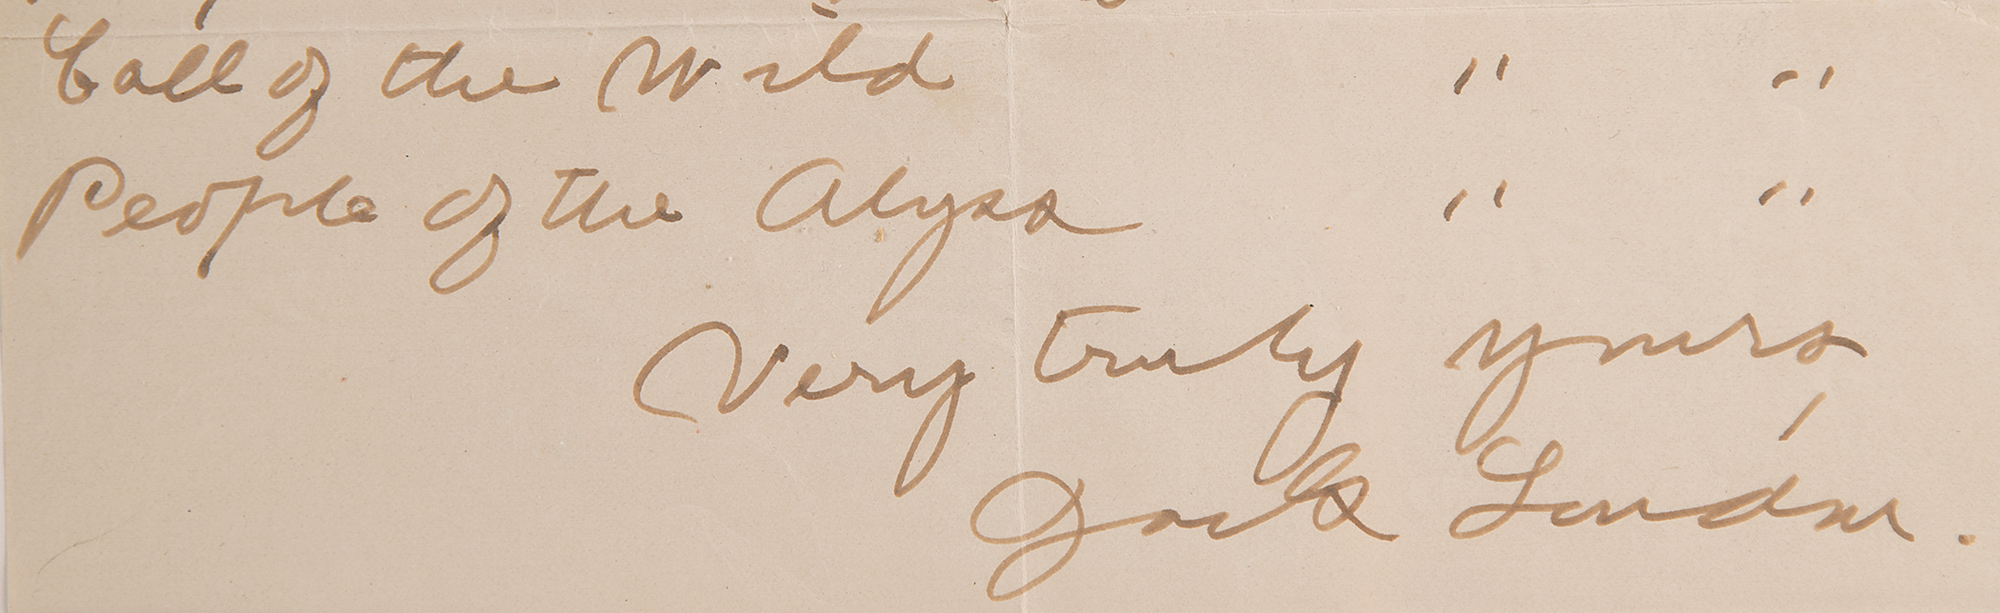 Call of the Wild " "
People of the Abyss " "
Very truly yours,
Jack London.